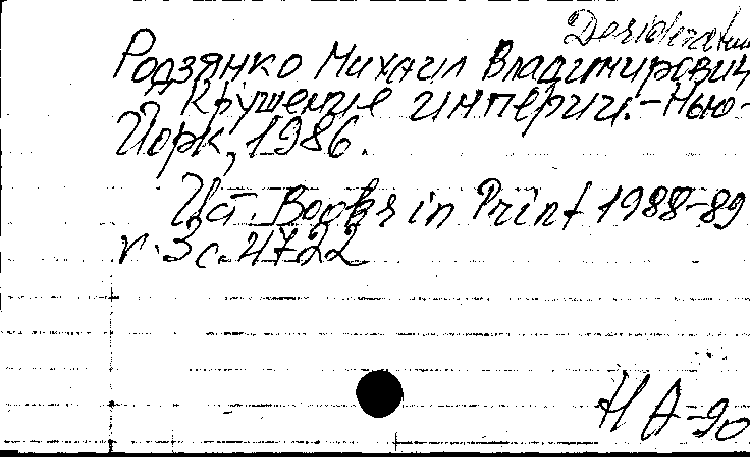 Desideratum
Родзянко Михаил Владимирович
Крушение империи.-Нью-
Йорк, 1986.
Ист. Books in Print 1988-89
v.3 с.4722
НА-90